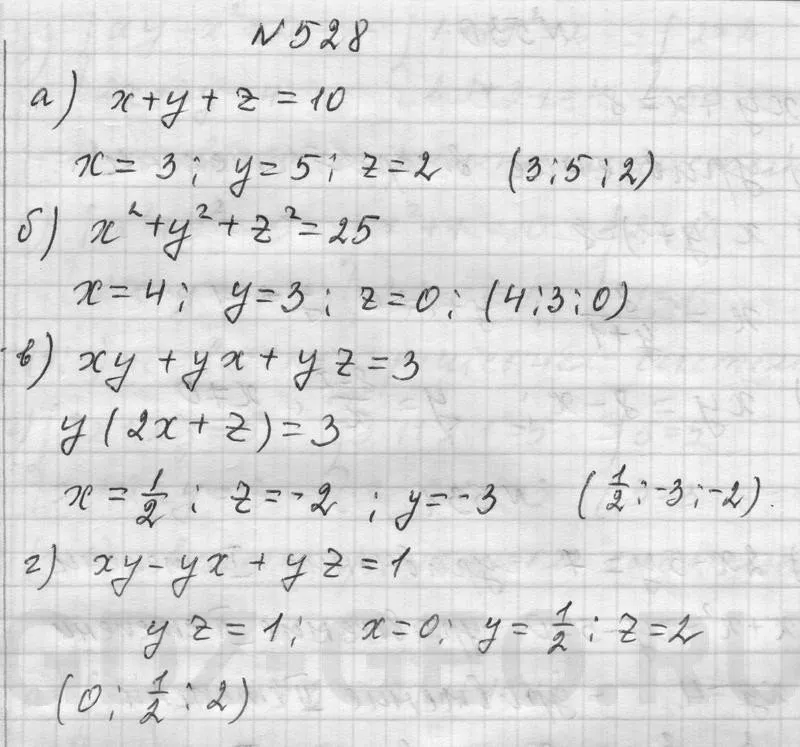 №528
а) x+y+z=10
x=3; y=5; z=2 (3;5;2)
б) x²+y²+z²=25
x=4; y=3; z=0; (4;3;0)
в) xy+yx+yz=3
y(2x+z)=3
x=1/2; z=-2; y=-3 (1/2;-3;-2).
г) xy-yx+yz=1
yz=1; x=0; y=1/2; z=2
(0;1/2;2)